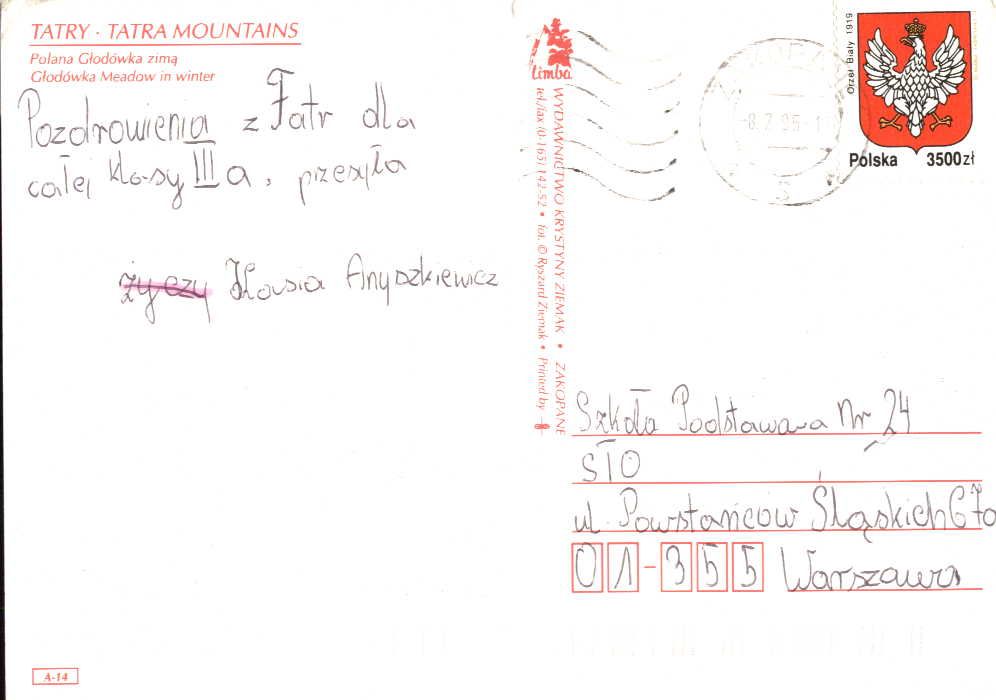 TATRY · TATRA MOUNTAINS
Polana Głodówka zimą
Głodówka Meadow in winter
Pozdrowienia z Tatr dla
całej klasy III a, przesyła
życzy Kasia Anyszkiewicz
limba
WYDAWNICTWO KRYSTYNY ZIEMAK • ZAKOPANE
tel./fax (0-165) 142-52 • fot. © Ryszard Ziemak • Printed by
Orzeł Biały 1919
Polska 3500zł
Szkoła Podstawowa Nr 24
STO
ul. Powstańców Śląskich 67a
01-355 Warszawa
A-14